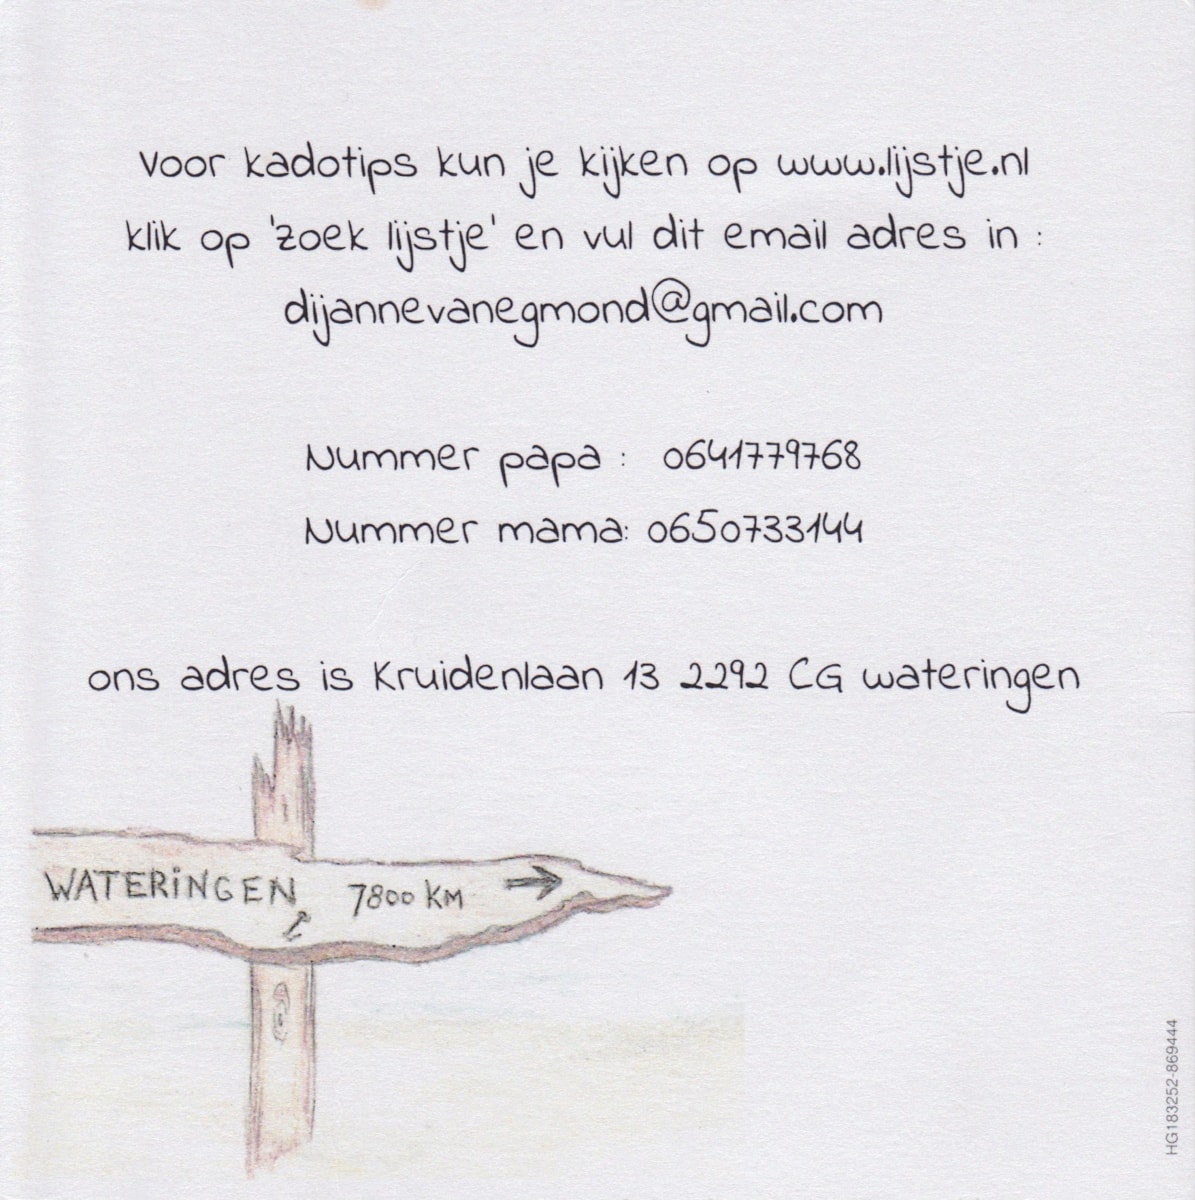 voor kadotips kun je kijken op www.lijstje.nl
klik op 'zoek lijstje' en vul dit email adres in :
dijannevanegmond@gmail.com
Nummer papa : 0641779768
Nummer mama: 0650733144
ons adres is Kruidenlaan 13 2292 CG wateringen
WATERiNGEN 7800 KM →
HG183252-869444